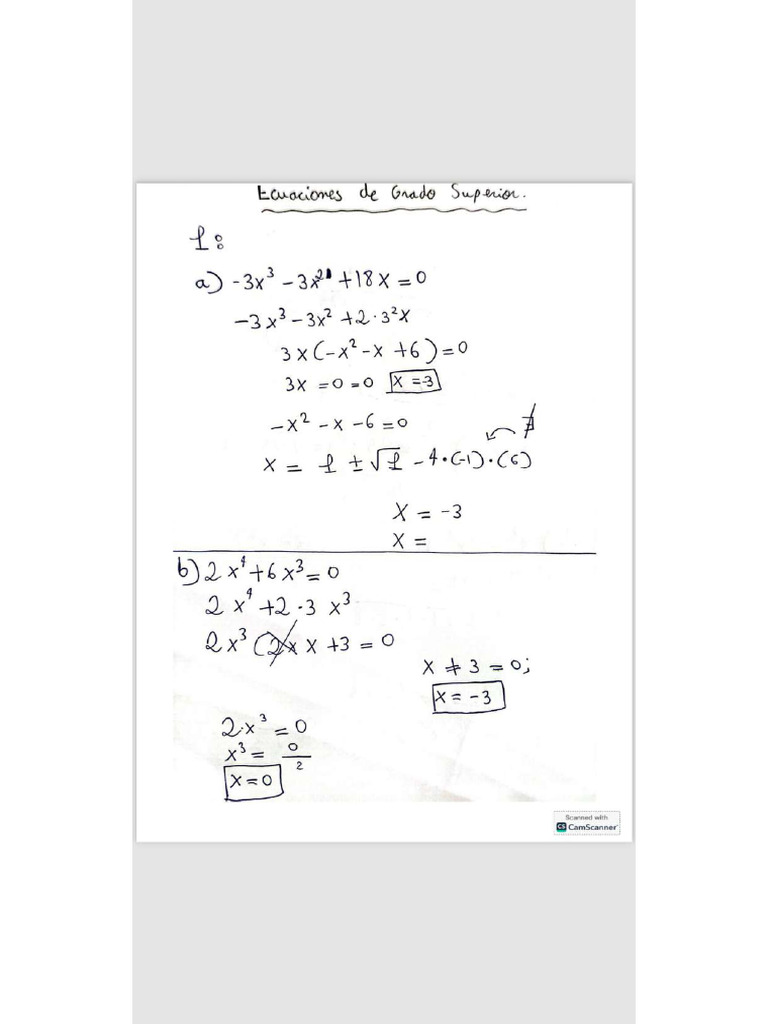 Ecuaciones de Grado Superior.
1:
a) -3x³ - 3x² + 18x = 0
-3x³ - 3x² + 2·3²x
3x(-x² - x + 6) = 0
3x = 0 = 0 x = -3
-x² - x - 6 = 0
∄
x = 1 ± √1 - 4·(-1)·(6)
x = -3
x =
b) 2x⁴ + 6x³ = 0
2x⁴ + 2·3 x³
2x³ (2x x + 3 = 0
x + 3 = 0;
x = -3
2·x³ = 0
x³ = 0/2
x = 0
Scanned with
CS CamScanner